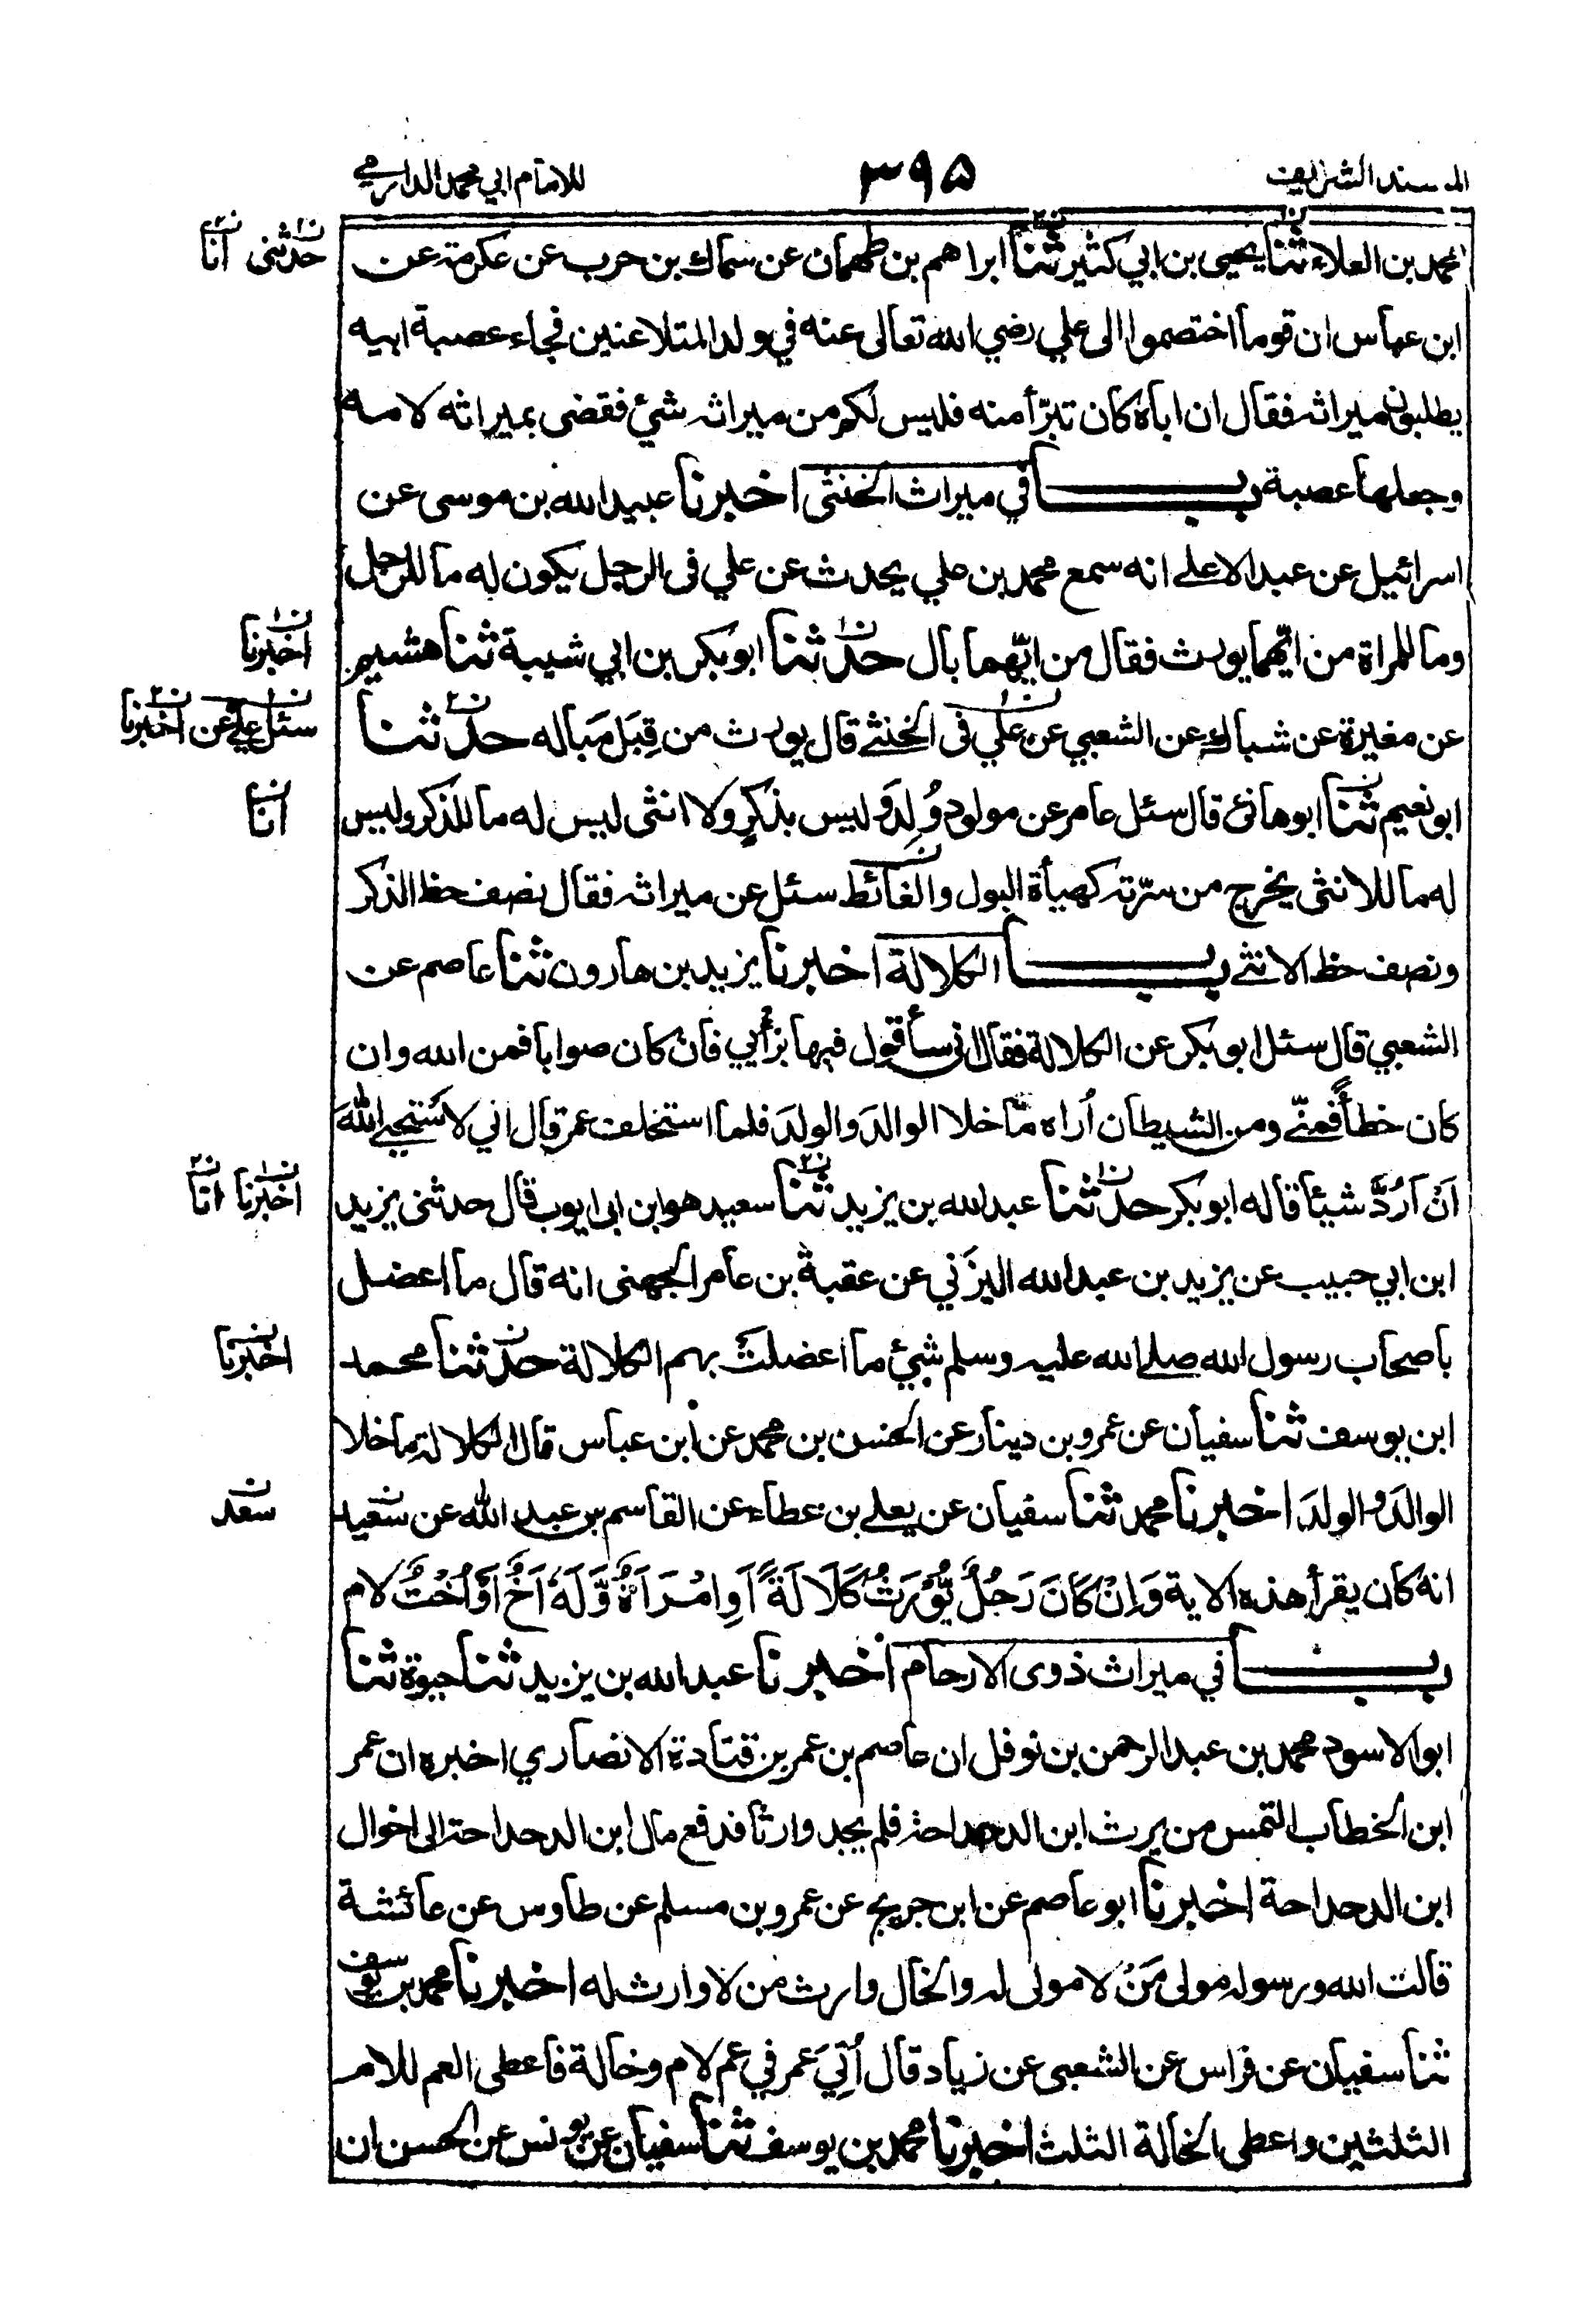 المسند الشريف ٣٩٥ للامام ابي محمد الدارمي
محمد بن العلاء ثنا يحيى بن ابي كثير ثنا ابراهيم بن طهمان عن سماك بن حرب عن عكرمة عن
حدثنى انا
ابن عباس ان قوما اختصموا الى علي رضي الله تعالى عنه في ولد المتلاعنين فجاء عصبة ابيه
يطلبون ميراثه فقال ان اباه كان تبرّأ منه فليس لكم من ميراثه شئ فقضى بميراثه لامه
وجعلها عصبة باب في ميراث الخنثى اخبرنا عبيد الله بن موسى عن
اسرائيل عن عبد الاعلے انه سمع محمد بن علي يحدث عن علي فى الرجل يكون له ما للرجل
وما للمراة من ايّهما يورث فقال من ايّهما بال حدثنا ابو بكر بن ابي شيبة ثنا هشيم
اخبرنا
عن مغيرة عن شباك عن الشعبي عن علي فى الخنثے قال يورث من قِبَل مَباله حدثنا
سئل علي عن اخبرنا
ابو نعيم ثنا ابو هانئ قال سئل عامر عن مولود وُلِدَ وليس بذكرٍ ولا انثى ليس له ما للذكر وليس
انا
له ما للانثى يخرج من سرّته كهيأة البول والغائط سئل عن ميراثه فقال نصف حظ الذكر
ونصف حظ الانثے باب الكلالة اخبرنا يزيد بن هارون ثنا عاصم عن
الشعبي قال سئل ابو بكر عن الكلالة فقال انى سأقول فيها برأيي فان كان صوابا فمن الله وان
كان خطأً فمنّے ومن الشيطان اُراه ما خلا الوالدَ والولدَ فلما استخلف عمر قال اني لاستحيے اللهَ
اَنْ اَرُدَّ شيئا قاله ابو بكر حدثنا عبد الله بن يزيد ثنا سعيد هو ابن ابى ايوب قال حدثنى يزيد
اخبرنا انا
ابن ابي حبيب عن يزيد بن عبد الله اليزَني عن عقبة بن عامر الجهنى انه قال ما اعضل
باصحاب رسول الله صلے الله عليه وسلم شئ ما اعضلت بهم الكلالة حدثنا محمد
اخبرنا
ابن يوسف ثنا سفيان عن عمرو بن دينار عن الحسن بن محمد عن ابن عباس قال الكلالة ما خلا
الوالدَ والولدَ اخبرنا محمد ثنا سفيان عن يعلے بن عطاء عن القاسم بن عبد الله عن سعيد
سعد
انه كان يقرأ هذه الاية وَاِنْ كَانَ رَجُلٌ يُّوْرَثُ كَلَالَةً اَوِ امْرَاَةٌ وَّلَهٗ اَخٌ اَوْ اُخْتٌ لام
باب في ميراث ذوى الارحام اخبرنا عبد الله بن يزيد ثنا حيوة ثنا
ابو الاسود محمد بن عبد الرحمن بن نوفل ان عاصم بن عمر بن قتادة الانصاري اخبره ان عمر
ابن الخطاب التمس من يرث ابن الدحداحة فلم يجد وارثا فدفع مال ابن الدحداحة الى اخوال
ابن الدحداحة اخبرنا ابو عاصم عن ابن جريج عن عمرو بن مسلم عن طاوس عن عائشة
قالت الله ورسوله مولى مَنْ لا مولى له والخال وارث من لا وارث له اخبرنا محمد بن يوسف
ثنا سفيان عن فراس عن الشعبى عن زياد قال اُتِيَ عمر في عم لام وخالة فاعطى العم للام
الثلثين واعطى الخالة الثلث اخبرنا محمد بن يوسف ثنا سفيان عن يونس عن الحسن ان